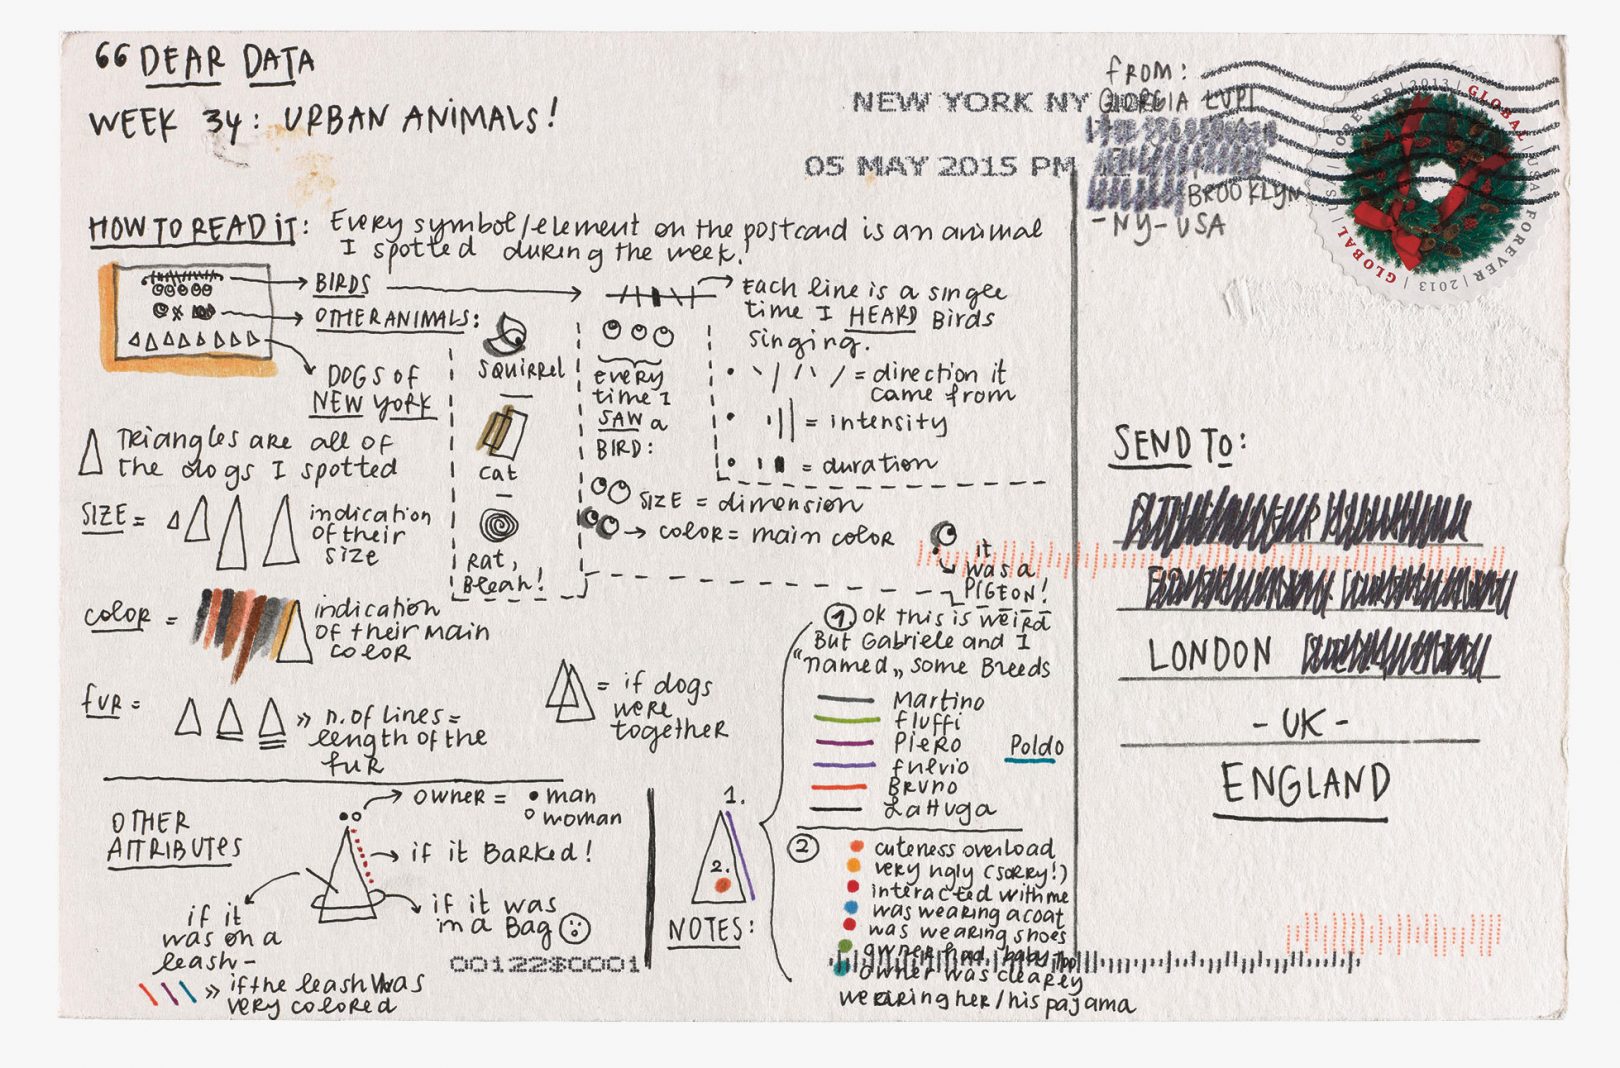 66 DEAR DATA
WEEK 34: URBAN ANIMALS!
NEW YORK NY
05 MAY 2015 PM
FROM:
GIORGIA LUPI
BROOKLYN
-NY-USA
GLOBAL | USA | FOREVER | 2013 | GLOBAL | USA | FOREVER | 2013 |
HOW TO READ IT: Every symbol/element on the postcard is an animal
I spotted during the week!
BIRDS
OTHER ANIMALS:
DOGS OF
NEW YORK
SQUIRREL
cat
Rat,
Bleah!
every
time I
SAW a
BIRD:
Each line is a single
time I HEARD Birds
singing.
= direction it
came from
= intensity
= duration
SIZE = dimension
COLOR = main color
it
was a
PIGEON!
TRIANGLES ARE all of
the dogs I spotted
SIZE =
indication
of their
size
COLOR =
indication
of their main
color
FUR =
» n. of lines =
length of the
fur
= if dogs
were
together
OTHER
ATTRIBUTES
OWNER = • man
° woman
if it BARKed!
if it was
in a Bag
if it
was on a
leash-
» if the leash was
very colored
1.
2.
NOTES:
1. OK this is weird
But Gabriele and I
"named„ some Breeds
Martino
Fluffi
Piero
Fulvio
Bruno
Lattuga
Poldo
2
cuteness overload
very ugly (sorry!)
interacted with me
was wearing a coat
was wearing shoes
owner had baby too
owner was clearly
wearing her/his pajama
00122$0001
SEND TO:
LONDON
-UK-
ENGLAND